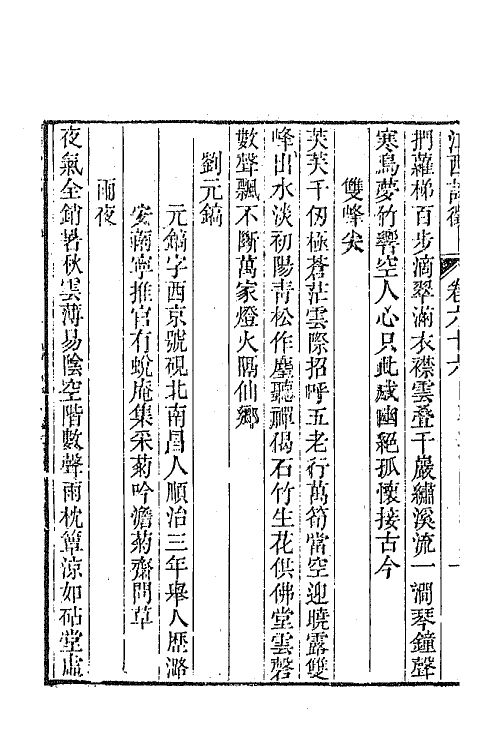 江西詩徵　卷六十六
捫蘿梯百步滴翠滿衣襟雲疊千巖繡溪流一澗琴鐘聲
寒鳥夢竹響空人心只此感幽絕孤懷接古今
雙峰尖
芙芙千仞極蒼茫雲際招呼五老行萬筍當空迎曉露雙
峰出水淡初陽青松作麈聽禪偈石竹生花供佛堂雲磬
數聲飄不斷萬家燈火隔仙鄉
劉元鎬
元鎬字西京號硯北南昌人順治三年舉人歷潞
安南寧推官有蛻庵集采菊吟澹菊齋問草
雨夜
夜氣全銷暑秋雲薄易陰空階數聲雨枕簟涼如砧堂虛